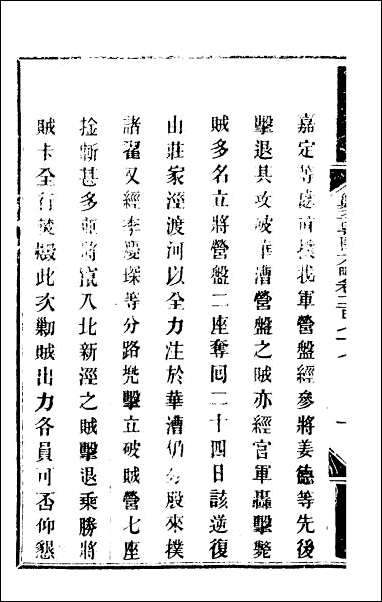 嘉定等處前撲我軍營盤經參將姜德等先後
擊退其攻破華漕營盤之賊亦經官軍轟擊斃
賊多名立將營盤二座奪囘二十四日該逆復
山莊家涇渡河以全力注於華漕仍分股來撲
諸翟又經李慶琛等分路兜擊立破賊營七座
捡斬甚多並將竄入北新涇之賊擊退乘勝將
賊卡全行焚燬此次勦賊出力各員可否仰懇